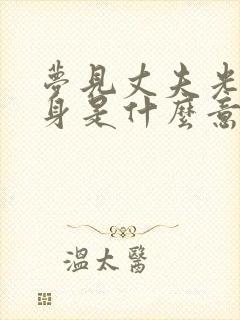 夢見丈夫光
身是什麼意
溫太醫